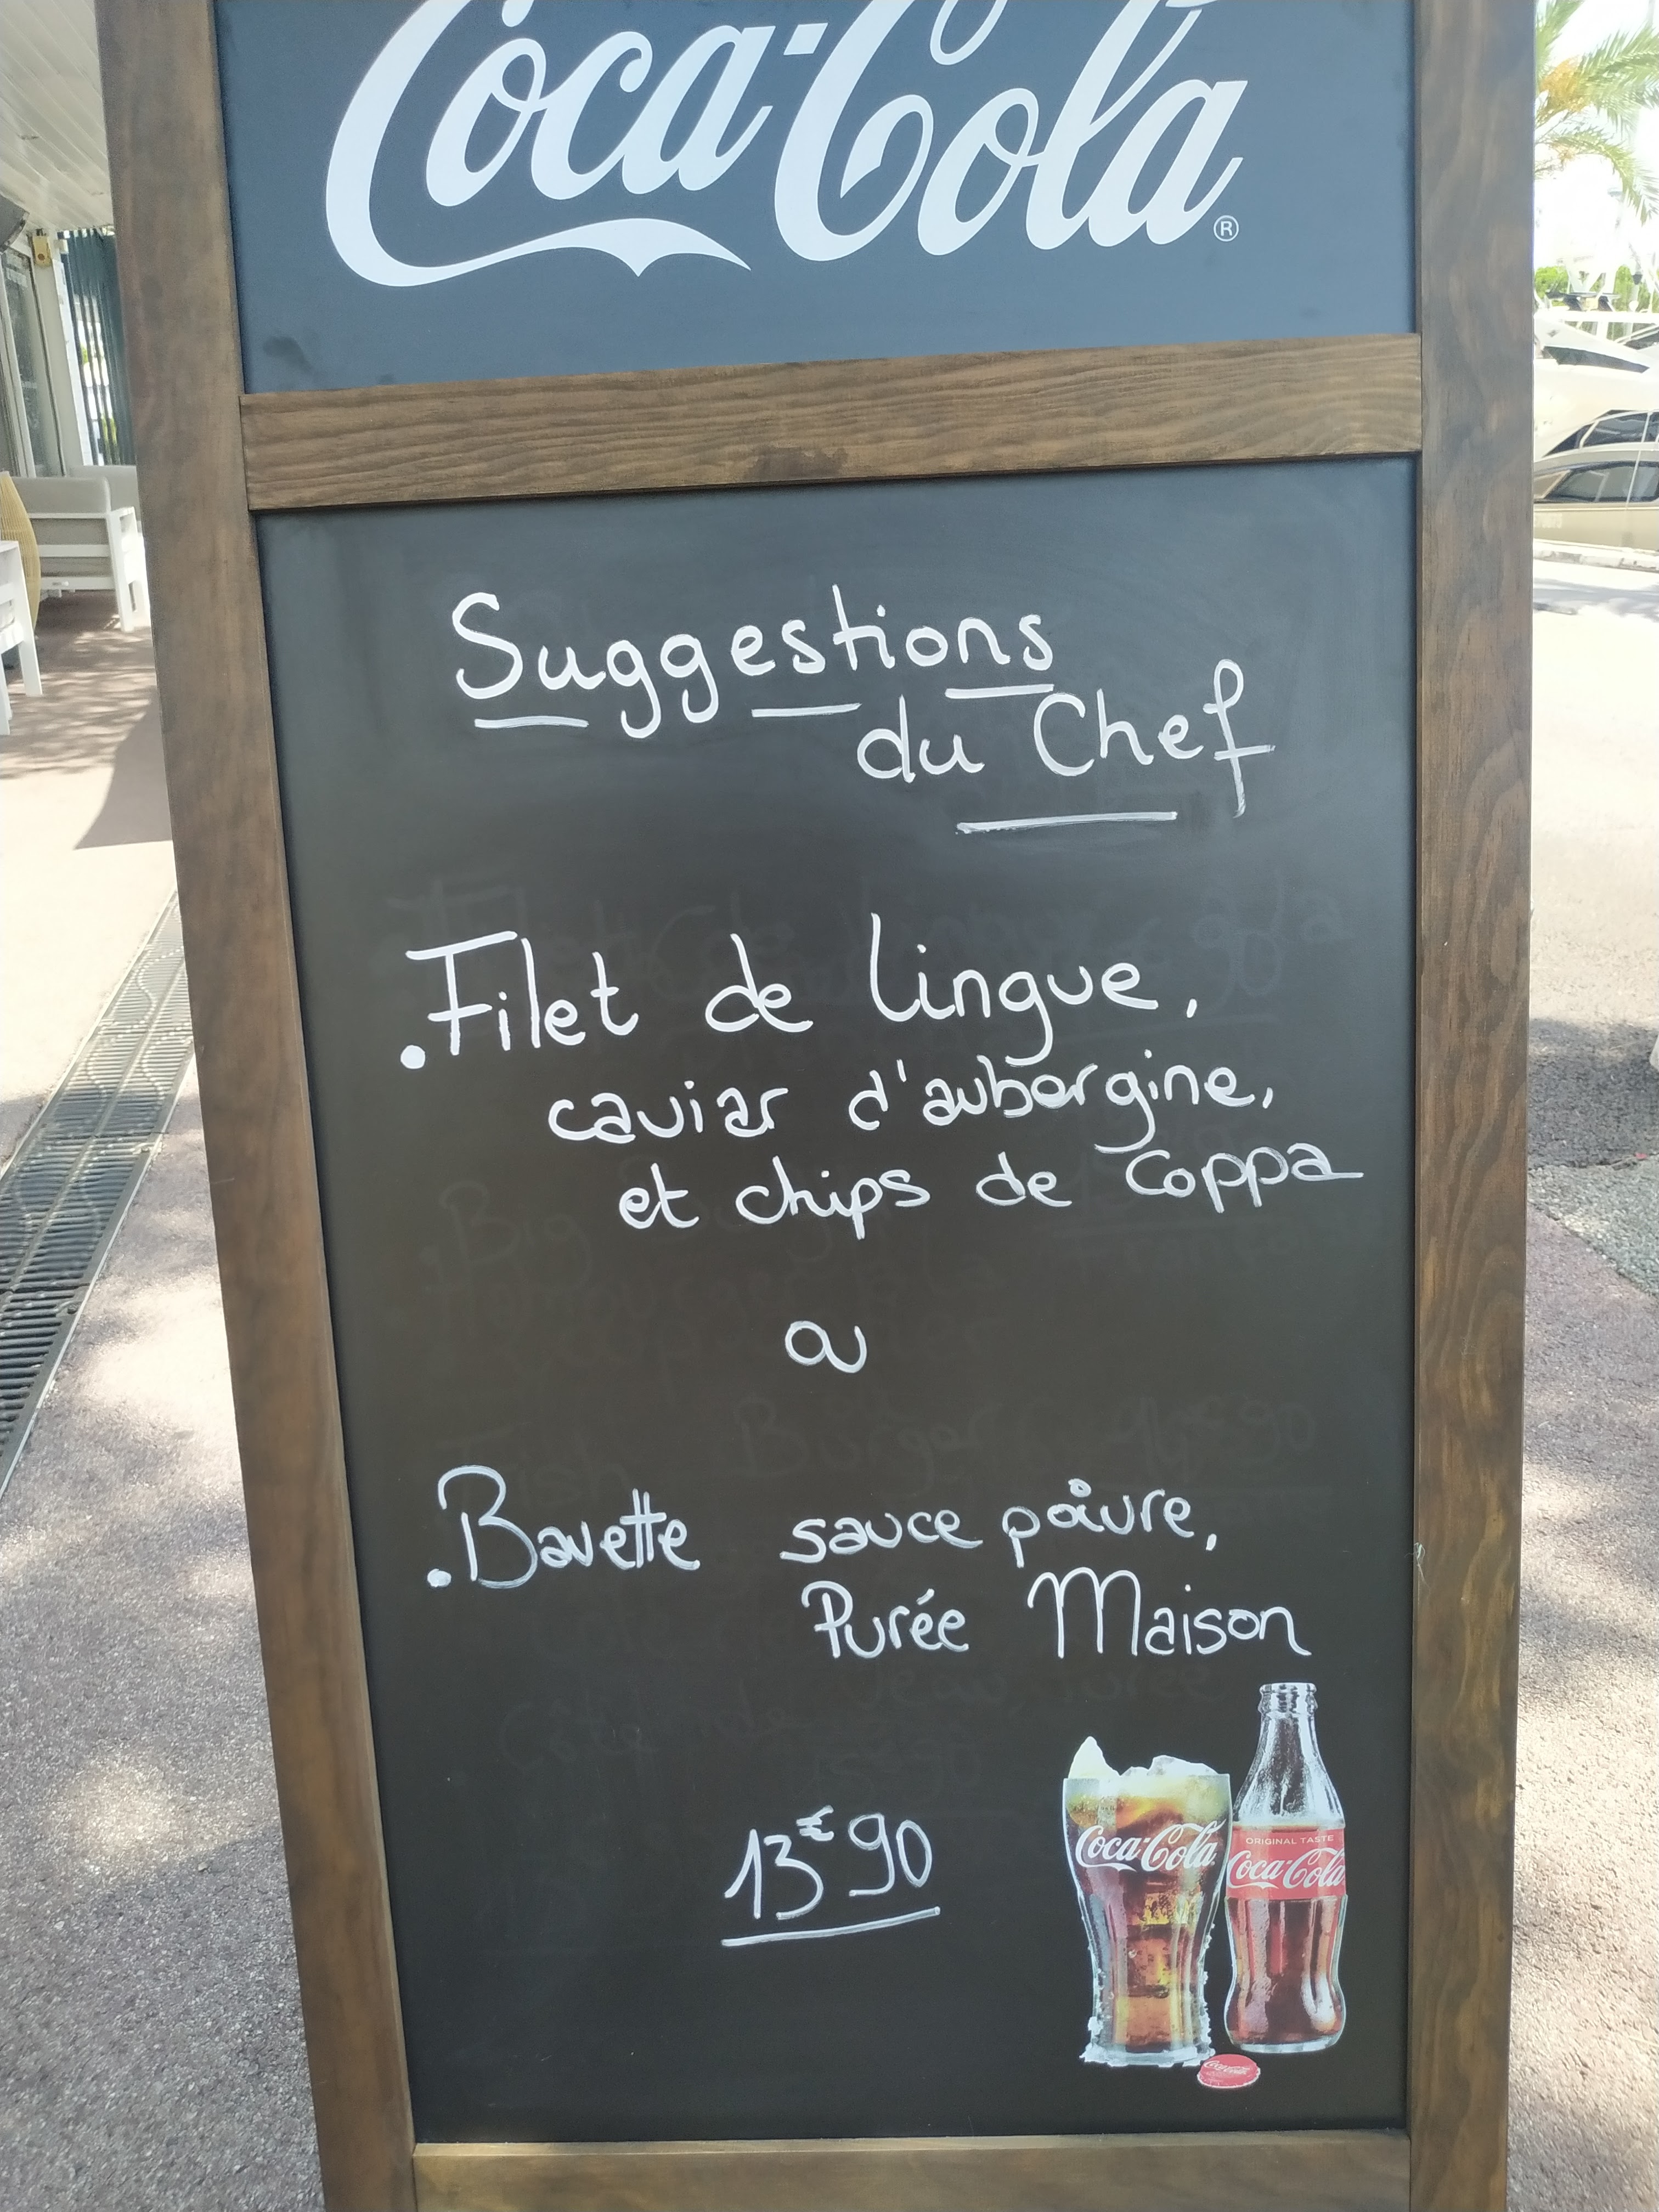 Coca-Cola®
Suggestions
du Chef
. Filet de lingue,
caviar d'aubergine,
et chips de coppa
ou
. Bavette sauce poivre,
Purée Maison
13€90
Coca-Cola
ORIGINAL TASTE
Coca-Cola